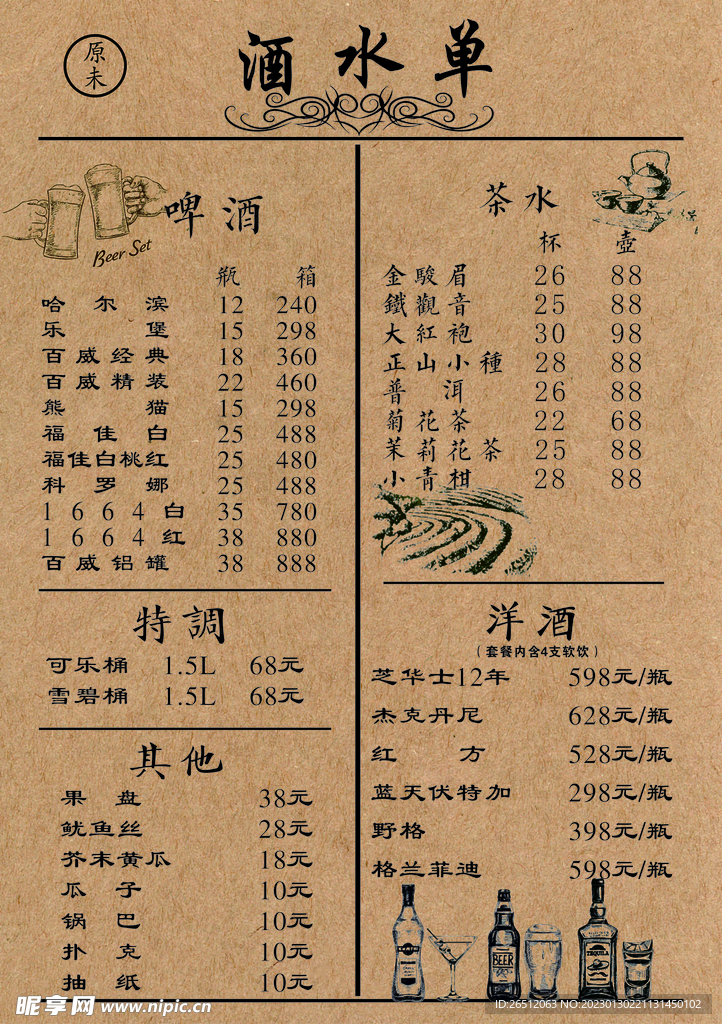 原未
酒水单
啤酒
Beer Set
瓶 箱
哈尔滨 12 240
乐堡 15 298
百威经典 18 360
百威精装 22 460
熊猫 15 298
福佳白 25 488
福佳白桃红 25 480
科罗娜 25 488
1664白 35 780
1664红 38 880
百威铝罐 38 888
特調
可乐桶 1.5L 68元
雪碧桶 1.5L 68元
其他
果盘 38元
鱿鱼丝 28元
芥末黄瓜 18元
瓜子 10元
锅巴 10元
扑克 10元
抽纸 10元
茶水
杯 壶
金駿眉 26 88
鐵觀音 25 88
大紅袍 30 98
正山小種 28 88
普洱 26 88
菊花茶 22 68
茉莉花茶 25 88
小青柑 28 88
洋酒
（套餐内含4支软饮）
芝华士12年 598元/瓶
杰克丹尼 628元/瓶
红方 528元/瓶
蓝天伏特加 298元/瓶
野格 398元/瓶
格兰菲迪 598元/瓶
BEER
TEQUILA
昵享网 www.nipic.cn
ID:26512063 NO:20230130221131450102